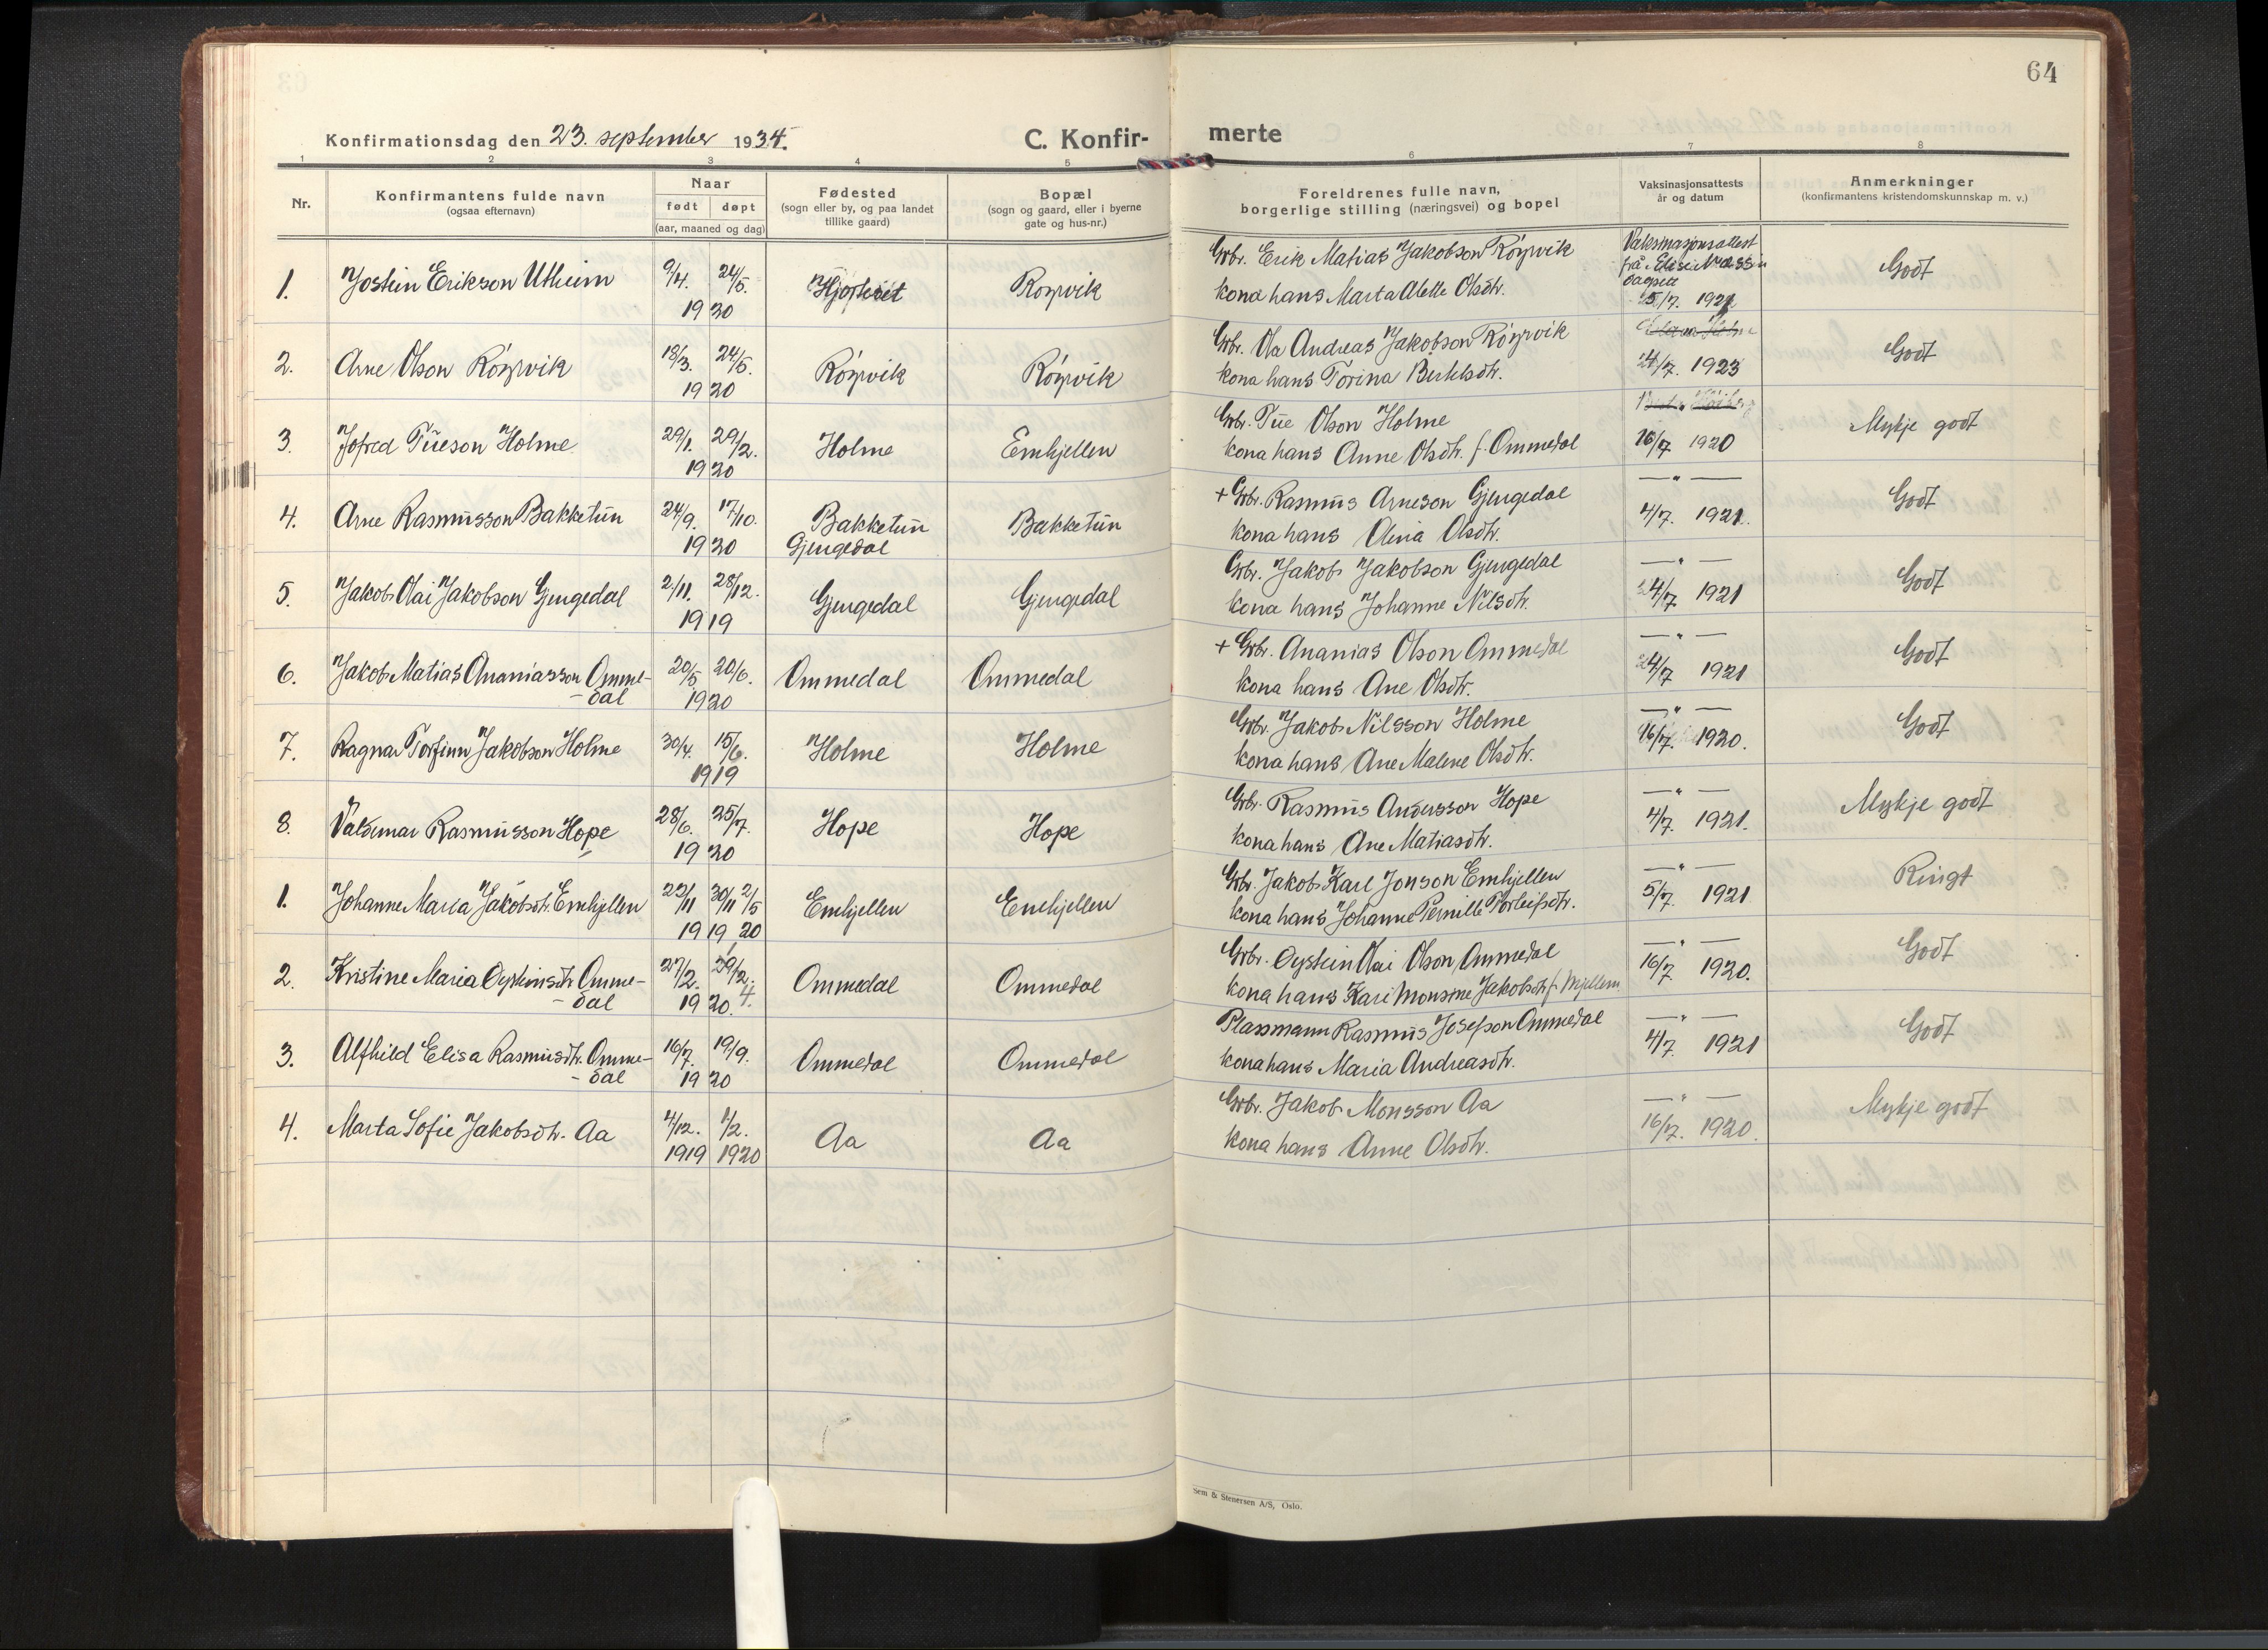 64
Konfirmationsdag den 23. september 1934.
C. Konfir-
merte
1 2 3 4 5 6 7 8
Nr.
Konfirmantens fulde navn
(ogsaa efternavn)
Naar
født døpt
(aar, maaned og dag)
Fødested
(sogn eller by, og paa landet
tillike gaard)
Bopæl
(sogn og gaard, eller i byerne
gate og hus-nr.)
Foreldrenes fulle navn,
borgerlige stilling (næringsvei) og bopel
Vaksinasjonsattests
år og datum
Anmerkninger
(konfirmantens kristendomskunnskap m. v.)
1. Jostein Erikson Utheim 9/4. 24/5. 1920 Røyrvik
Grbr. Erik Matias Jakobson Røyrvik
kona hans Marta Olsdtr.
Vaksinasjonsattest
frå
5/7. 1921
Godt
2. Arne Olson Røyrvik 18/3. 24/5. 1920 Røyrvik Røyrvik
Grbr. Ola Andreas Jakobson Røyrvik
kona hans Torina Bertelsdtr.
24/7. 1923
Godt
3. Jofred Tueson Holme 29/1. 29/2. 1920 Holme Emhjellen
Grbr. Tue Olson Holme
kona hans Anne Olsdtr. f. Ommedal
16/7 1920
Mykje godt
4. Arne Rasmusson Bakketun 24/9. 17/10. 1920 Bakketun
Gjengedal
Bakketun
+ Grbr. Rasmus Arneson Gjengedal
kona hans Olina Olsdtr.
— " —
4/7. 1921.
Godt
5. Jakob Olai Jakobson Gjengedal 2/11. 28/12. 1919 Gjengedal Gjengedal
Grbr. Jakob Jakobson Gjengedal
kona hans Johanne Nilsdtr.
— " —
4/7 1921
Godt
6. Jakob Matias Ananiasson Omme-
- dal
20/5 20/6. 1920 Ommedal Ommedal
+ Grbr. Ananias Olson Ommedal
kona hans Ane Olsdtr.
— " —
4/7 1921
Godt
7. Ragnar Torfinn Jakobson Holme 30/4. 15/6. 1919 Holme Holme
Grbr. Jakob Nilsson Holme
kona hans Ane Malene Olsdtr.
— " —
16/7. 1920.
Godt
8. Valdemar Rasmusson Hope 28/6. 25/7. 1920 Hope Hope
Grbr. Rasmus Andersson Hope
kona hans Ane Matiasdtr.
— " —
4/7. 1921.
Mykje godt
1. Johanne Maria Jakobsdtr. Emhjellen 23/11 30/11 2/5 1919 20 Emhjellen Emhjellen
Grbr. Jakob Karl Jonson Emhjellen
kona hans Johanne Pernille Torleifsdtr.
— " —
5/7. 1921
Ringt
2. Kristine Maria Oysteinsdtr. Omme-
- dal
27/2. 29/2. 4. 1920. Ommedal Ommedal
Grbr. Oystein Olai Olson Ommedal
kona hans Kari Monsine Jakobsdtr f.
— " —
16/7 1920.
Godt
3. Alfhild Elisa Rasmusdtr. Omme-
- dal
16/7. 19/9. 1920 Ommedal Ommedal
Plassmann Rasmus Josefson Ommedal
kona hans Maria Andreasdtr.
— " —
4/7. 1921
Godt
4. Marta Sofie Jakobsdtr. Aa 4/12. 1/2. 1919 1920 Aa Aa
Grbr. Jakob Monsson Aa
kona hans Anne Olsdtr.
— " —
16/7. 1920.
Mykje godt
Sem & Stenersen A/S, Oslo.